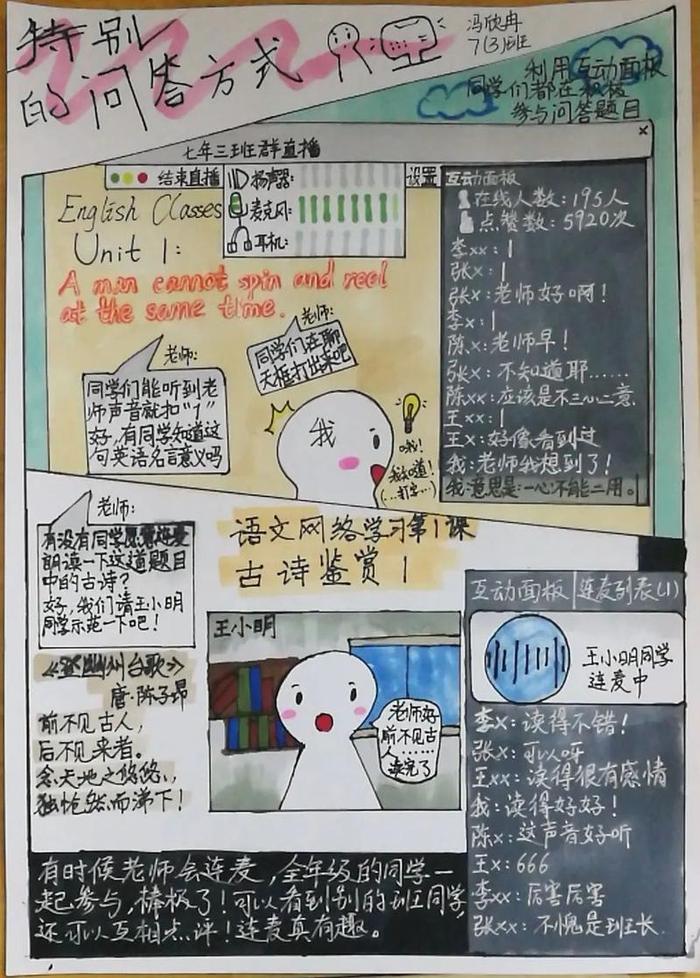 特别
的问答方式
冯欣冉
7(3)班
利用互动面板
同学们都在积极
参与问答题目
七年三班群直播
x
结束直播
扬声器:
麦克风:
耳机:
设置
English Classes
Unit 1:
A man cannot spin and reel
at the same time.
老师:
同学们能听到老
师声音就扣“1”
好,有同学知道这
句英语名言意义吗
老师:
同学们在聊
天框打出来吧
我
哦!
我知道!
(...打字...)
互动面板
在线人数:195人
点赞数:5920次
李xx:1
张x:1
张x:老师好啊!
李x:1
陈x:老师早!
张x:不知道耶......
陈xx:应该是不三心二意.
王xx:1
王x:好像看到过
我:老师我想到了!
我:意思是:一心不能二用。
老师:
有没有同学愿意连麦
朗读一下这道题目
中的古诗?
好,我们请王小明
同学示范一下吧!
语文网络学习第1课
古诗鉴赏1
《登幽州台歌》
唐·陈子昂
前不见古人,
后不见来者。
念天地之悠悠,
独怆然而涕下!
王小明
老师好
前不见古
人......
读完了
互动面板 连麦列表(1)
王小明同学
连麦中
李x:读得不错!
张x:可以呀
王xx:读得很有感情
我:读得好好!
陈x:这声音好听
王x:666
李xx:厉害厉害
张xx:不愧是班长.
有时候老师会连麦,全年级的同学一
起参与,棒极了!可以看到别的班同学,
还可以互相点评!连麦真有趣。